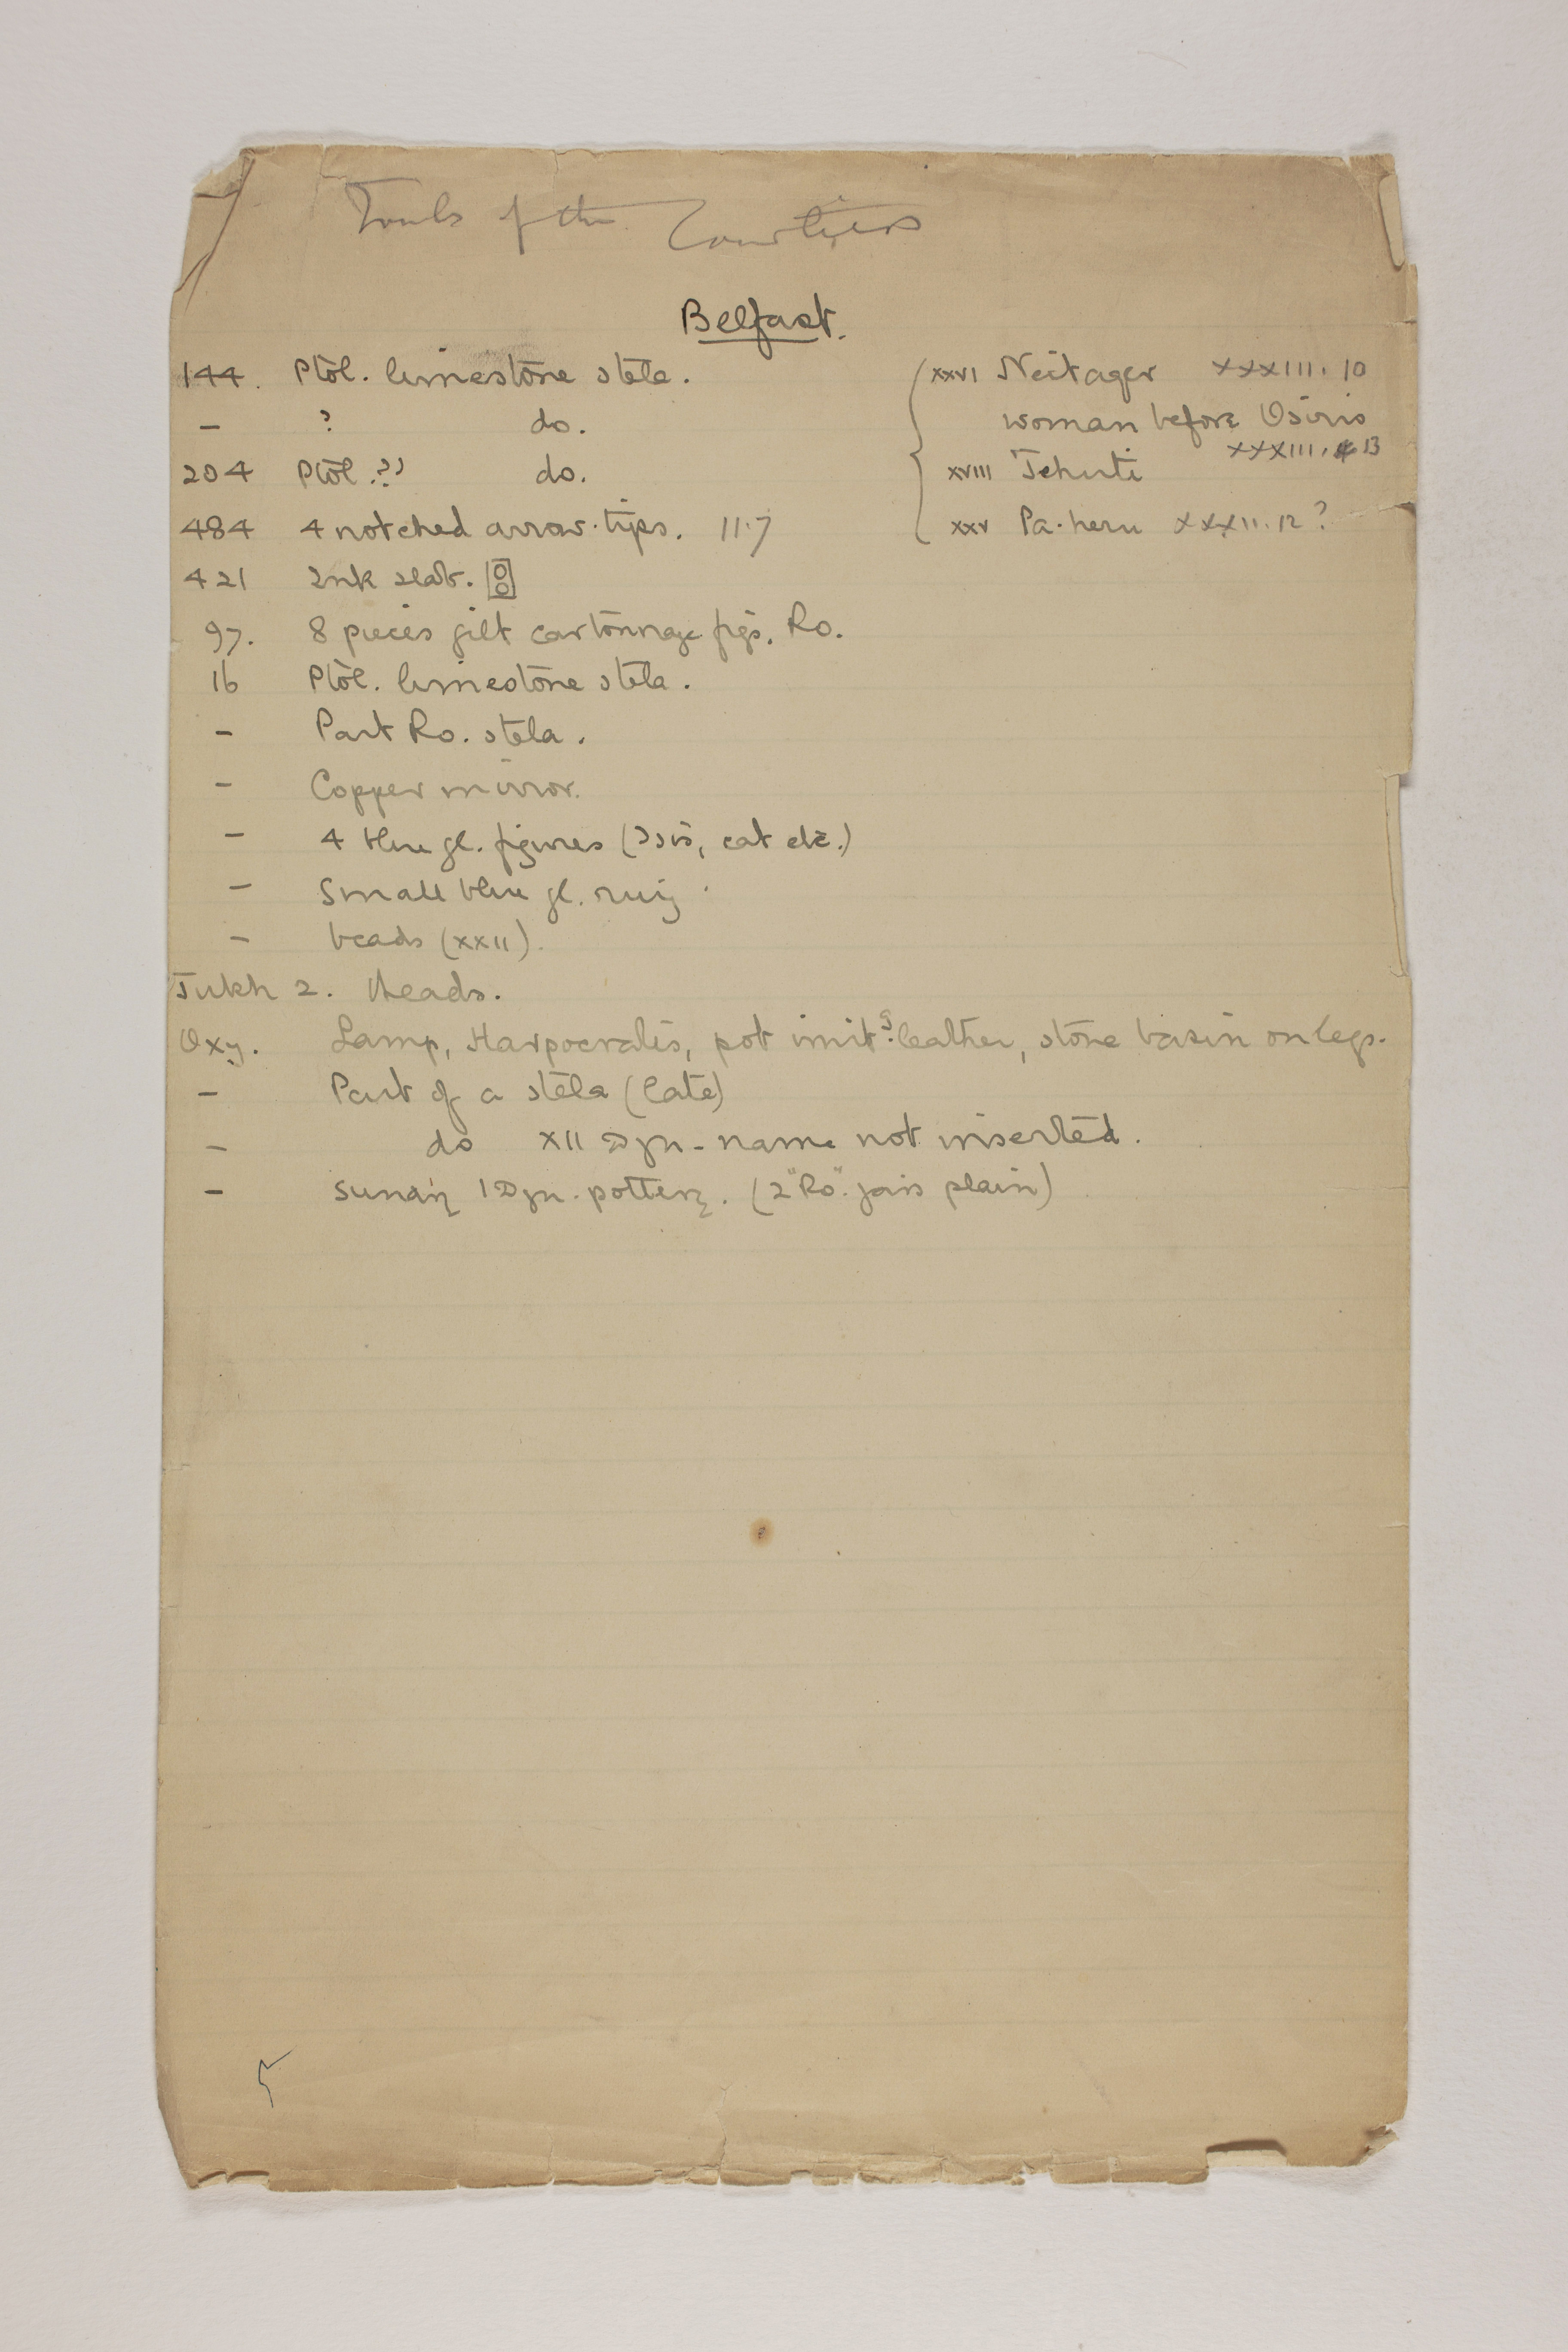 Tombs of the Courtiers
Belfast.
144. Ptol. limestone stela. { XXVI Neitaqer XXXIII. 10
– ? do. woman before Osiris
XXXIII. 13
204 Ptol ?? do. XVIII Tehuti
484 4 notched arrow-tips. 11.7 XXV Pa-heru XXXII. 12 ?
421 Ink slab.
97. 8 pieces gilt cartonnage figs. Ro.
16 Ptol. limestone stela.
– Part Ro. stela.
– Copper mirror.
– 4 blue gl. figures (Isis, cat etc.)
– Small blue gl. ring
– beads (XXII).
Tukh 2. Heads.
Oxy. Lamp, Harpocrates, pot imitg. leather, stone basin on legs.
– Part of a stela (late)
– do XII Dyn - name not inserted.
– Sundry 1 Dyn. pottery. (2 "Ro". jars plain)